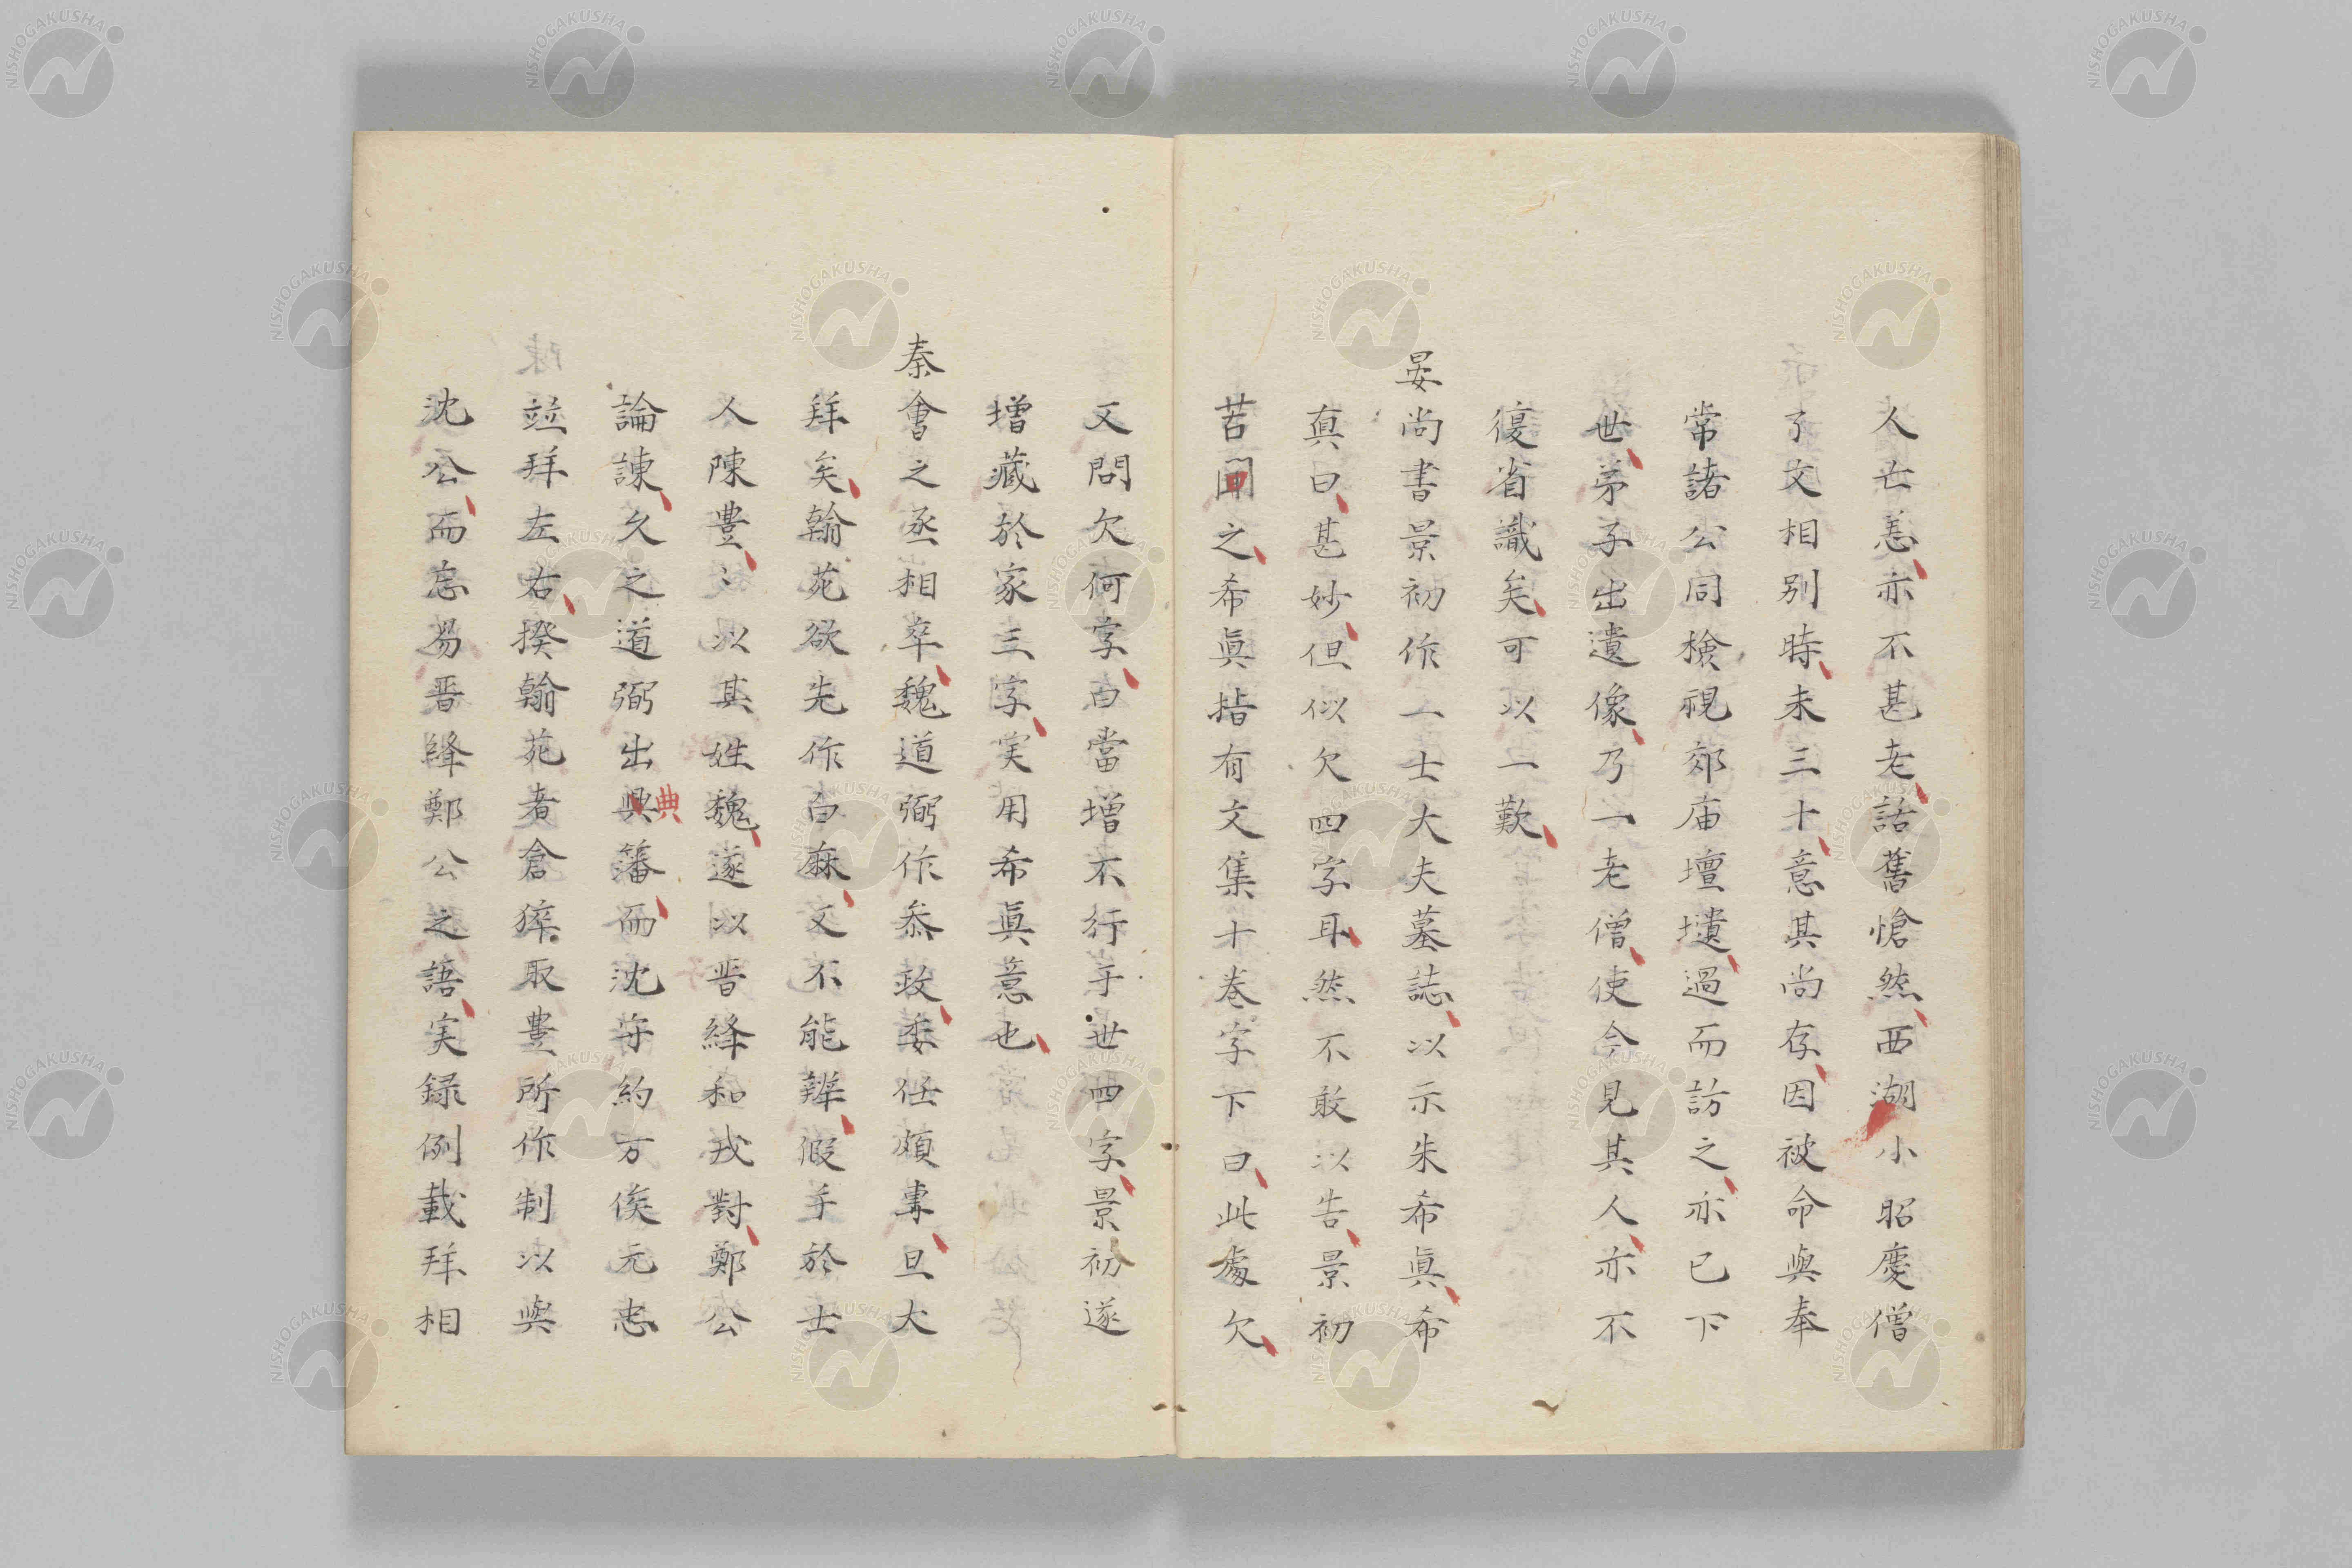 人亡恙亦不甚老話舊愴然西湖小昭慶僧
了文相別時未三十意其尚存因被命與奉
常諸公同檢視郊庙壇壝過而訪之亦已下
世弟子出遺像乃一老僧使今見其人亦不
復省識矣可以一歎
晏尚書景初作一士大夫墓誌以示朱希眞希
眞曰甚妙但似欠四字耳然不敢以告景初
苦聞之希眞指有文集十卷字下曰此處欠
又問欠何字曰當增不行于世四字景初遂
增藏於家三字実用希眞意也
秦會之丞相卒魏道弼作叅政委任頗専且大
拜矣翰苑欲先作白麻又不能辨假手於士
人陳豊〻以其姓魏遂以晋絳和戎對鄭公
論諫久之道弼出典藩而沈守約万俟元忠
並拜左右揆翰苑者倉猝取豊所作制以與
沈公而忘易晋絳鄭公之語実録例載拜相
NISHOGAKUSHA